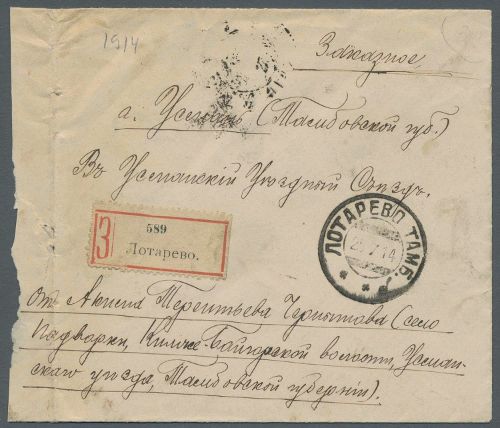 1914
Заказное
г. Усмань (Тамбовской губ.)
Въ Усманскій Уѣздный Съѣздъ.
З
589
Лотарево.
ЛОТАРЕВО ТАМБ.
7 14
Отъ Терентьева (село
Подворки, Байгорской волости, Усман-
скаго уѣзда, Тамбовской губерніи).